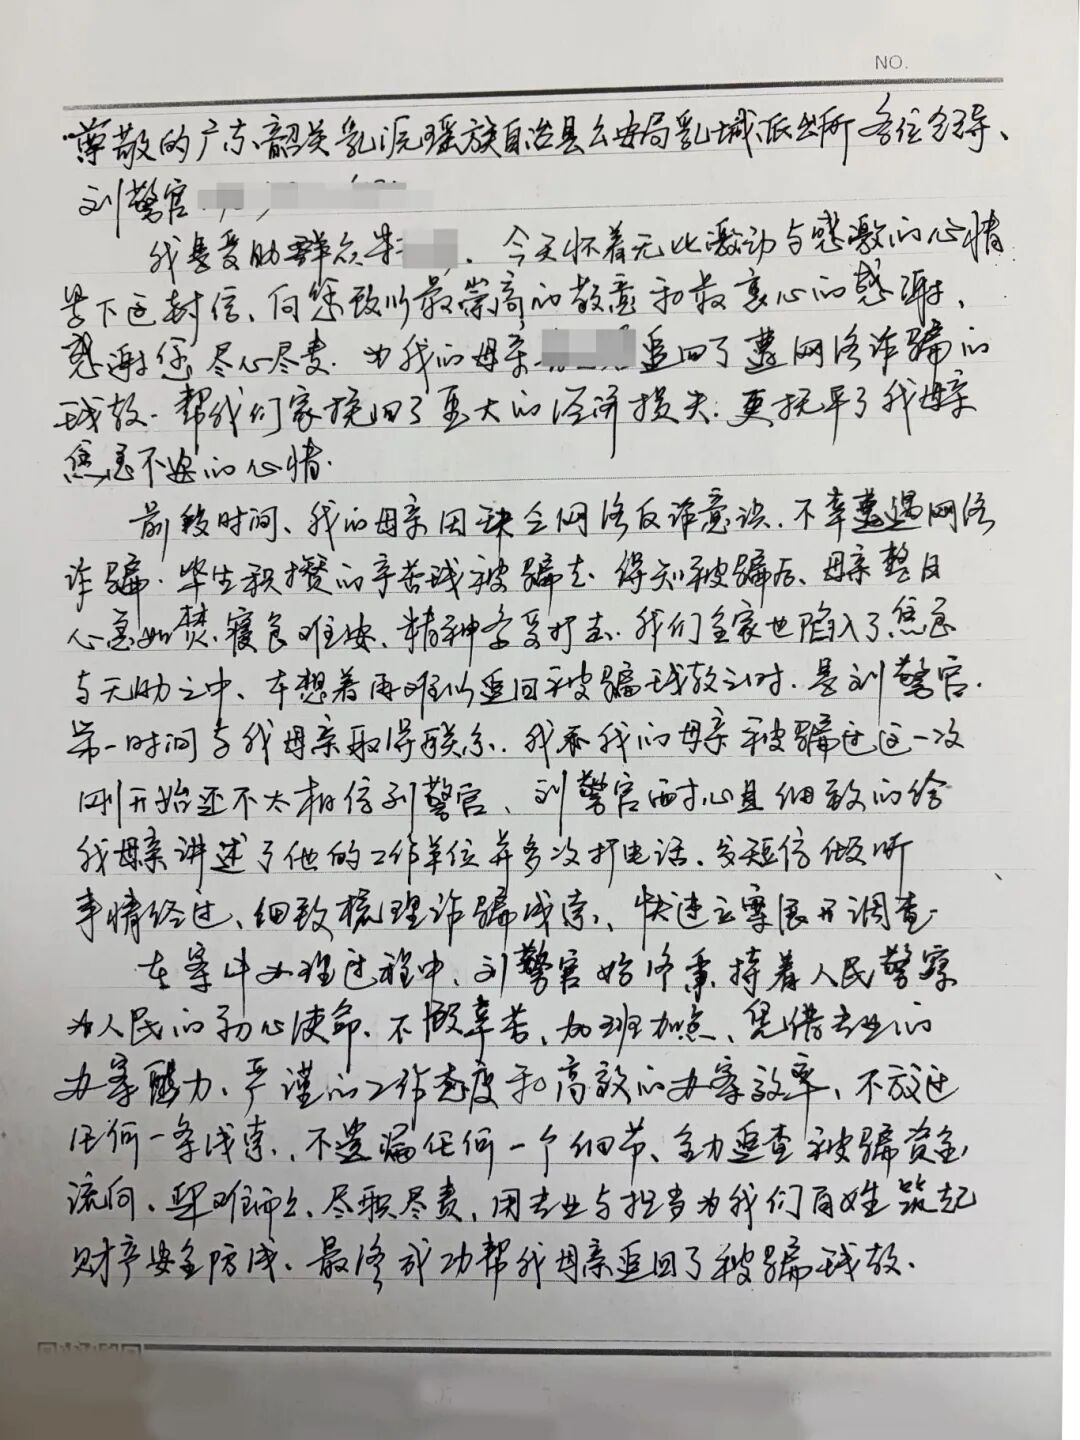 NO.
尊敬的广东韶关乳源瑶族自治县公安局乳城派出所各位领导、
刘警官
我是受助群众朱 ，今天怀着无比激动与感激的心情
写下这封信、向您致以最崇高的敬意和最衷心的感谢、
感谢您尽心尽责.为我的母亲 追回了遭网络诈骗的
钱款.帮我们家挽回了重大的经济损失.更抚平了我母亲
焦急不安的心情.
前段时间、我的母亲因缺乏网络反诈意识.不幸遭遇网络
诈骗.毕生积攒的辛苦钱被骗去.得知被骗后、母亲整日
心急如焚.寝食难安、精神备受打击.我们全家也陷入了焦急
与无助之中、本想着再难以追回被骗钱款之时.是刘警官.
第一时间与我母亲取得联系.我和我的母亲被骗过这一次
刚开始还不太相信刘警官、刘警官耐心且细致的给
我母亲讲述了他的工作单位并多次打电话、发短信倾听
事情经过、细致梳理诈骗线索、快速立案展开调查.
在案件办理过程中、刘警官始终秉持着人民警察
为人民的初心使命.不辞辛苦、加班加点、凭借专业的
办案能力、严谨的工作态度和高效的办案效率、不放过
任何一条线索、不遗漏任何一个细节、全力追查被骗资金
流向、迎难而上、尽职尽责、用专业与担当为我们百姓筑起
财产安全防线、最终成功帮我母亲追回了被骗钱款.